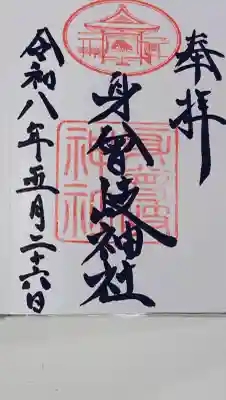 奉拝
身曾岐神社
令和八年五月二十六日